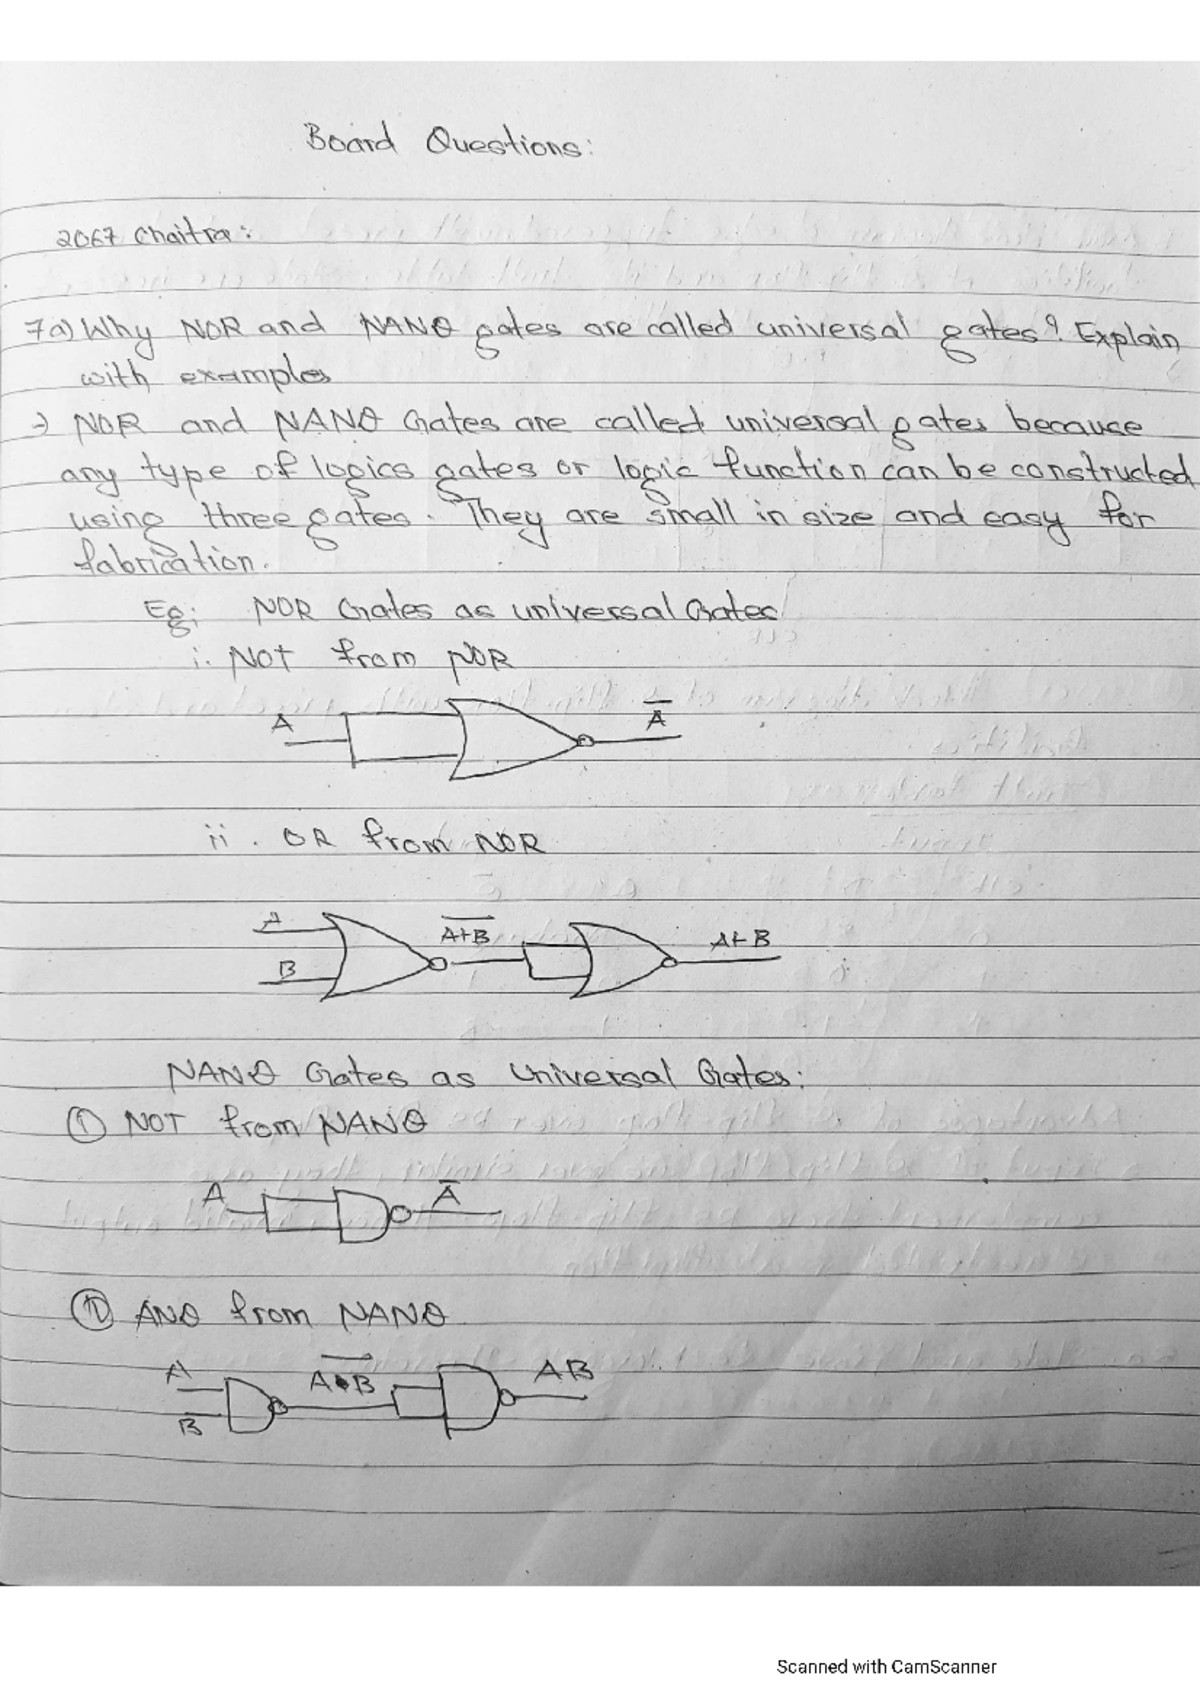 Board Questions:
2067 Chaitra:
7a) Why NOR and NAND gates are called universal gates? Explain
with examples
→ NOR and NAND Gates are called universal gates because
any type of logics gates or logic function can be constructed
using three gates. They are small in size and easy for
fabrication.
Eg; NOR Gates as universal Gates
i. NOT from NOR
A A̅
ii. OR from NOR
A
B
A+B̅ A+B
NAND Gates as Universal Gates:
① NOT from NAND
A A̅
② AND from NAND
A
B
A•B̅ AB
Scanned with CamScanner